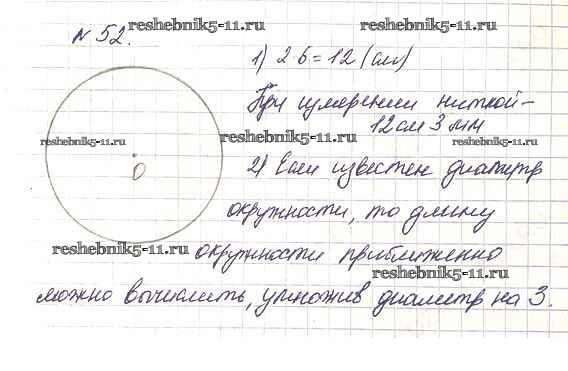 reshebnik5-11.ru
reshebnik5-11.ru
№ 52.
1) 2·6=12 (см)
При измерении ниткой-
12 см 3 мм
reshebnik5-11.ru
reshebnik5-11.ru
reshebnik5-11.ru
О
2) Если известен диаметр
окружности, то длину
reshebnik5-11.ru
окружности приближенно
reshebnik5-11.ru
можно вычислить, умножив диаметр на 3.